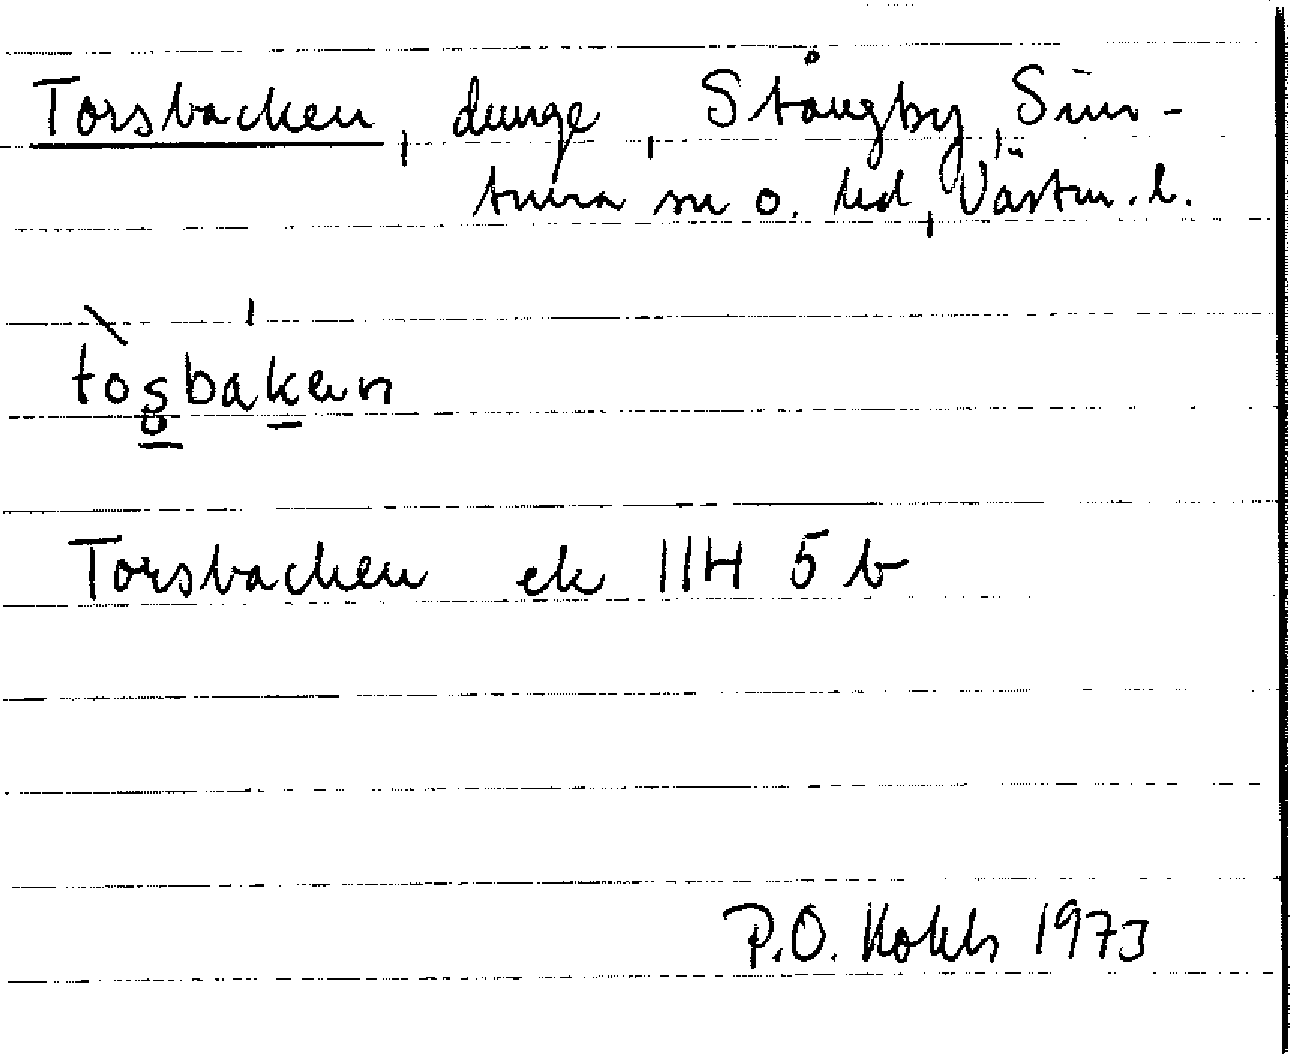 Torsbacken, dunge, Stångby, Sim-
tuna sn o. hd, Västm. l.
tòsbakan
Torsbacken ek 11H 5 b
P.O. 1973